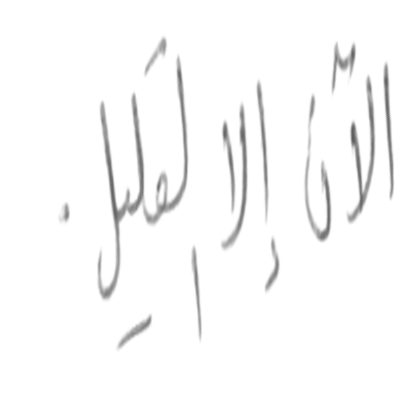 الآن إلا لقليل.